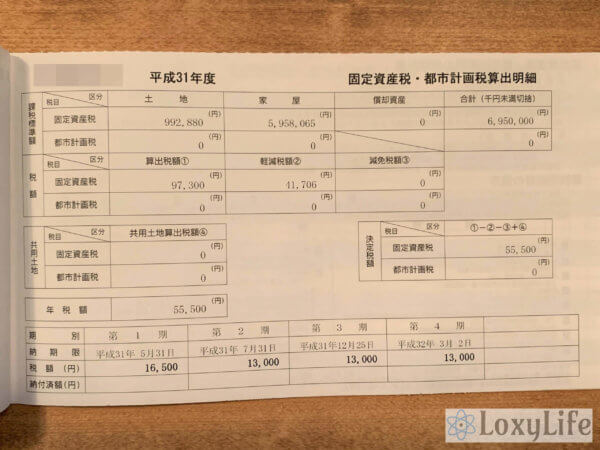 平成31年度 固定資産税・都市計画税算出明細
課税標準額 税目 区分 土地 家屋 償却資産 合計(千円未満切捨)
固定資産税 992,880(円) 5,958,065(円) 0(円) 6,950,000(円)
都市計画税 0 0 0 0
税額 税目 区分 算出税額① 軽減税額② 減免税額③
固定資産税 97,300(円) 41,706(円) 0(円)
都市計画税 0 0 0
共用土地 税目 区分 共用土地算出税額④
固定資産税 0(円)
都市計画税 0
決定税額 税目 区分 ①-②-③+④
固定資産税 55,500(円)
都市計画税 0
年税額 55,500(円)
期別 第1期 第2期 第3期 第4期
納期限 平成31年 5月31日 平成31年 7月31日 平成31年12月25日 平成32年 3月 2日
税額(円) 16,500 13,000 13,000 13,000
納付済額(円)
LoxyLife